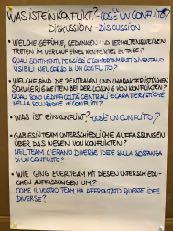 WAS IST EIN KONFLIKT? COSÈ UN CONFLITTO?
DISKUSSION - DISCUSSIONE
• WELCHE GEFÜHLE, GEDANKEN UND VERHALTENSWEISEN
TRETEN IM VERLAUF EINES KONFLIKTES
QUALI SENTIMENTI, PENSIERI E COMPORTAMENTI SONO
VISIBILI NEL CORSO DI UN CONFLITTO?
• WELCHE SIND DIE ZENTRALEN UND CHARAKTERISTISCHEN
SCHWIERIGKEITEN BEI DER LÖSUNG VON KONFLIKTEN?
QUALI SONO LE DIFFICOLTÀ CENTRALI E CARATTERISTICHE
NELLA SOLUZIONE DI CONFLITTI?
• WAS IST EIN KONFLIKT? COSÈ UN CONFLITTO?
• GAB ES IM TEAM UNTERSCHIEDLICHE AUFFASSUNGEN
ÜBER DAS WESEN VON KONFLIKTEN?
NEL TEAM C'ERANO DIVERSE IDEE SULLA SOSTANZA
DI UN CONFLITTO?
• WIE GING EUER TEAM MIT DIESEN UNTERSCHIEDLICHEN
AUFFASSUNGEN UM?
COME IL VOSTRO TEAM HA AFFRONTATO QUESTE IDEE
DIVERSE?